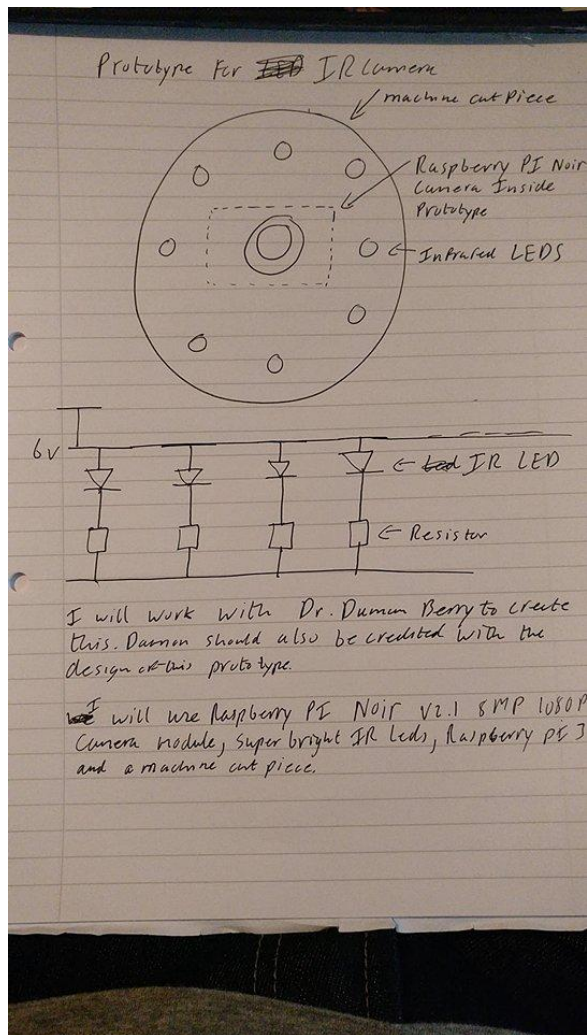 Prototype For IR Camera
machine cut piece
Raspberry PI Noir
Camera Inside
Prototype
Infrared LEDS
6V
IR LED
Resistor
I will work with Dr. Damon Berry to create
this. Damon should also be credited with the
design of this prototype.
I will use Raspberry PI Noir V2.1 8MP 1080P
Camera module, super bright IR Leds, Raspberry pI 3
and a machine cut piece.